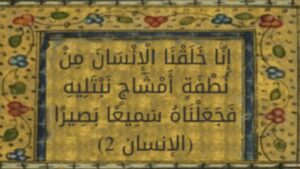 إِنَّا خَلَقْنَا الْإِنْسَانَ مِنْ
نُطْفَةٍ أَمْشَاجٍ نَبْتَلِيهِ
فَجَعَلْنَاهُ سَمِيعًا بَصِيرًا
(الإنسان 2)